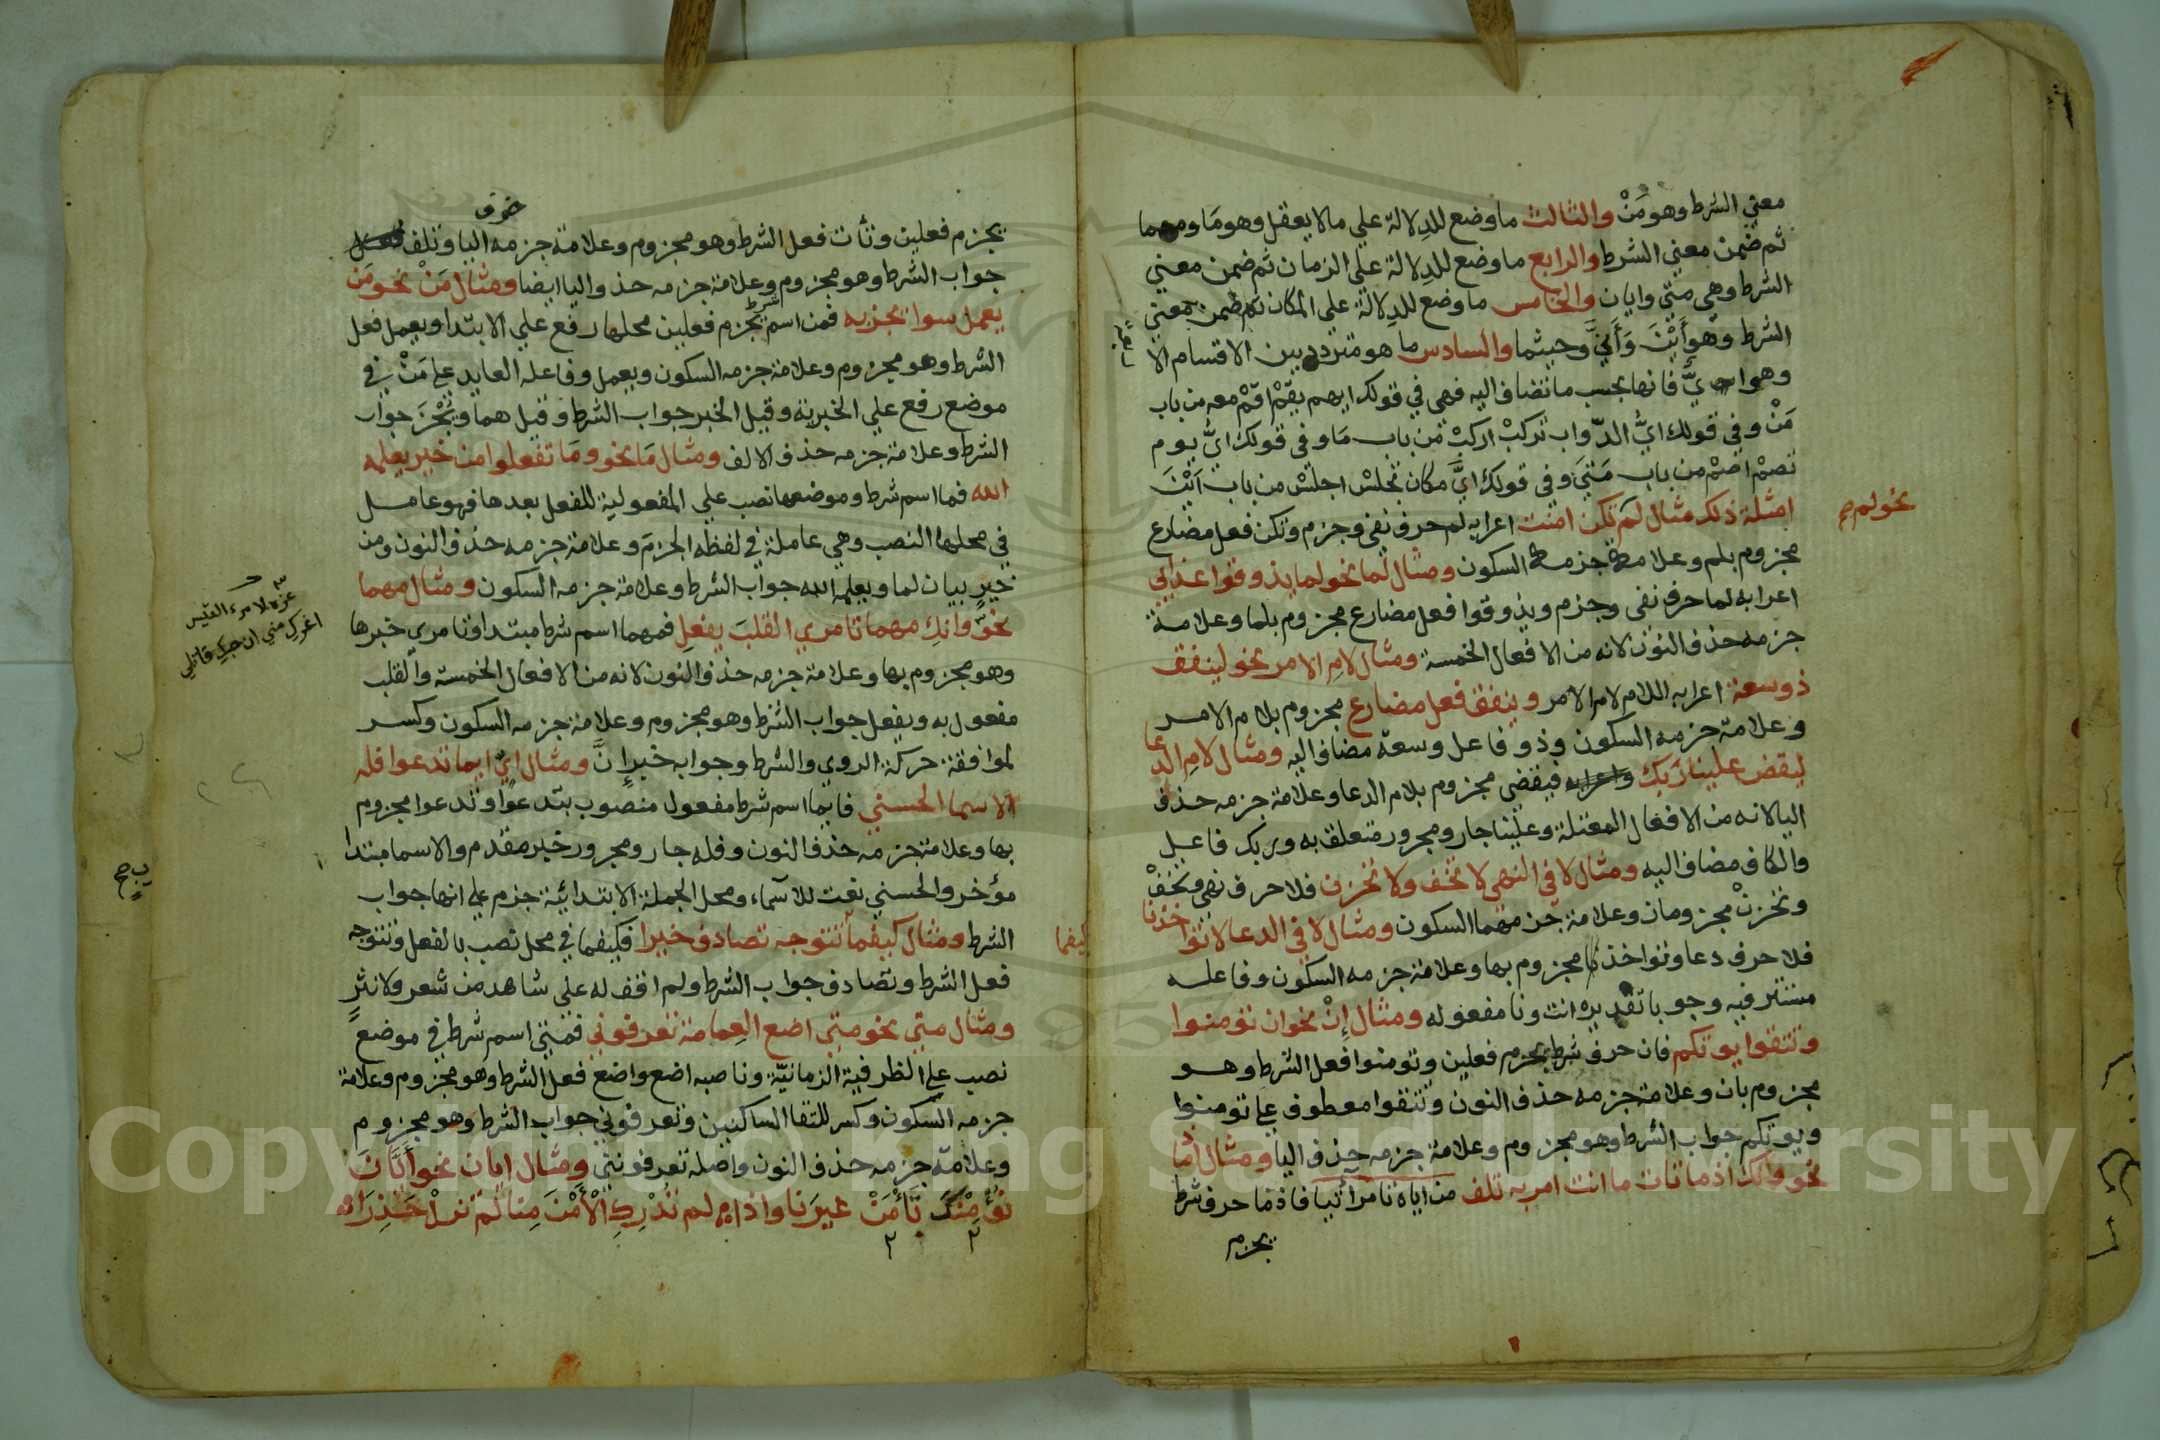 معني الشرط وهو مَنْ والثالث ما وضع للدِلالة علي مالا يعقل وهو مَا ومهما
ثم ضمن معني الشرط والرابع ما وضع للدِلالة علي الزمان ثم ضمن معني
الشرط وهي متي وايان والخامس ما وضع للدِلالة علي المكان ثم ضمن معني
الشرط وهو أَيْنَ وَأَنيَّ وحيثما والسادس ما هو متردد بين الاقسام الا
وهو ايُّ فانها بحسب ما تضاف اليه فهي في قولك ايهم يقمْ اقمْ معه من باب
مَنْ وفي قولك ايُّ الدّواب تركبْ اركبْ من باب مَا وفي قولك ايُّ يوم
تصمْ اصمْ من باب مَتيَ وفي قولك ايَّ مكان تجلسْ اجلسْ من باب اَيْنَ
امثلة ذلك مثال لَم تكن امنت اعرابه لم حرف نفي وجزم وتكن فعل مضارع
نحو لم صح
مجزوم بلم وعلامة جزمه السكون ومثال لَما نحو لما يذوقوا عذابي
اعرابه لما حرف نفي وجزم ويذوقوا فعل مضارع مجزوم بلما وعلامة
جزمه حذف النون لانه من الافعال الخمسة ومثال لامِ الامر نحو لينفق
ذو سعة اعرابه اللام لام الامر وينفق فعل مضارع مجزوم بلام الامر
وعلامة جزمه السكون وذو فاعل وسعة مضاف اليه ومثال لامِ الدعا
ليقض علينا ربك فيقضي مجزوم بلام الدعا وعلامة جزمه حذف
اليا لانه من الافعال المعتلة وعلينا جار ومجرور متعلق به وربك فاعل
والكاف مضاف اليه ومثال لا في النهي لا تخف ولا تحزن فلا حرف نهي وتخفْ
وتحزنْ مجزومان وعلامة جزمهما السكون ومثال لا في الدعا لا تواخذنا
فلا حرف دعا وتواخذنا مجزوم بها وعلامة جزمه السكون وفاعله
مستتر فيه وجوبا تقديره انت ونا مفعوله ومثال إِنْ نحو ان تومنوا
وتتقوا يوتكم فان حرف شرط يجزم فعلين وتومنوا فعل الشرط وهو
مجزوم بان وعلامة جزمه حذف النون وتتقوا معطوف علي تومنوا
ويوتكم جواب الشرط وهو مجزوم وعلامة جزمه حذف اليا ومثال اذما
نحو وانك اذما تات ما انت امر به تلف من اياه تامر آتيا فاذما حرف شرط
يجزم
يجزم فعلين وتات فعل الشرط وهو مجزوم وعلامة جزمه اليا وتلف
جواب الشرط وهو مجزوم وعلامة جزمه حذف اليا ايضا ومثال مَنْ نحو مَن
يعمل سوا يجز به فمن اسم شرط يجزم فعلين محلها رفع علي الابتدا ويعمل فعل
الشرط وهو مجزوم وعلامة جزمه السكون ويعمل وفاعله العايد علي مَنْ في
موضع رفع علي الخبرية وقيل الخبر جواب الشرط وقيل هما ويُجْزَ جواب
الشرط وعلامة جزمه حذف الالف ومثال مَا نحو ومَا تفعلوا من خير يعلمه
الله فما اسم شرط وموضعها نصب علي المفعولية للفعل بعدها فهو عامل
في محلها النصب وهي عاملة في لفظه الجزمَ وعلامة جزمه حذف النون ومن
خيرٍ بيان لما ويعلمه الله جواب الشرط وعلامة جزمه السكون ومثال مهما
نحو وانكِ مهما تامري القلبَ يفعلِ فمهما اسم شرط مبتدا وتامري خبرها
عزه لامرء القيس
اغرك مني ان حبك قاتلي
وهو مجزوم بها وعلامة جزمه حذف النون لانه من الافعال الخمسة والقلب
مفعول به ويفعل جواب الشرط وهو مجزوم وعلامة جزمه السكون وكسر
لموافقة حركة الروي والشرط وجوابه خبر إِنَّ ومثال ايّ ايما تدعوا فله
الاسما الحسني فايّما اسم شرط مفعول منصوب بتدعوا وتدعوا مجزوم
بها وعلامة جزمه حذف النون وفله جار ومجرور خبر مقدم والاسما مبتدا
مؤخر والحسني نعت للاسماء ومحل الجملة الابتدائية جزم علي انها جواب
الشرط ومثال كيفما تتوجه تصادف خيرا فكيفما في محل نصب بالفعل وتتوجه
كيفما
فعل الشرط وتصادف جواب الشرط ولم اقف له علي شاهد من شعر ولا نثرٍ
ومثال متي نحو متي اضع العِمامة تعرفوني فمتي اسم شرط في موضع
نصب علي الظرفية الزمانيّة وناصبه اضع واضع فعل الشرط وهو مجزوم وعلامة
جزمه السكون وكسر للتقا الساكنين وتعرفوني جواب الشرط وهو مجزوم
وعلامة جزمه حذف النون واصله تعرفونني ومثال ايان نحو أَيَّانَ
نُؤْمِنْكَ تَأْمَنْ غيرَنا واذا لم تُدْرِكِ الْأَمْنَ مِنَّا لَمْ تزلْ حَذِرَا